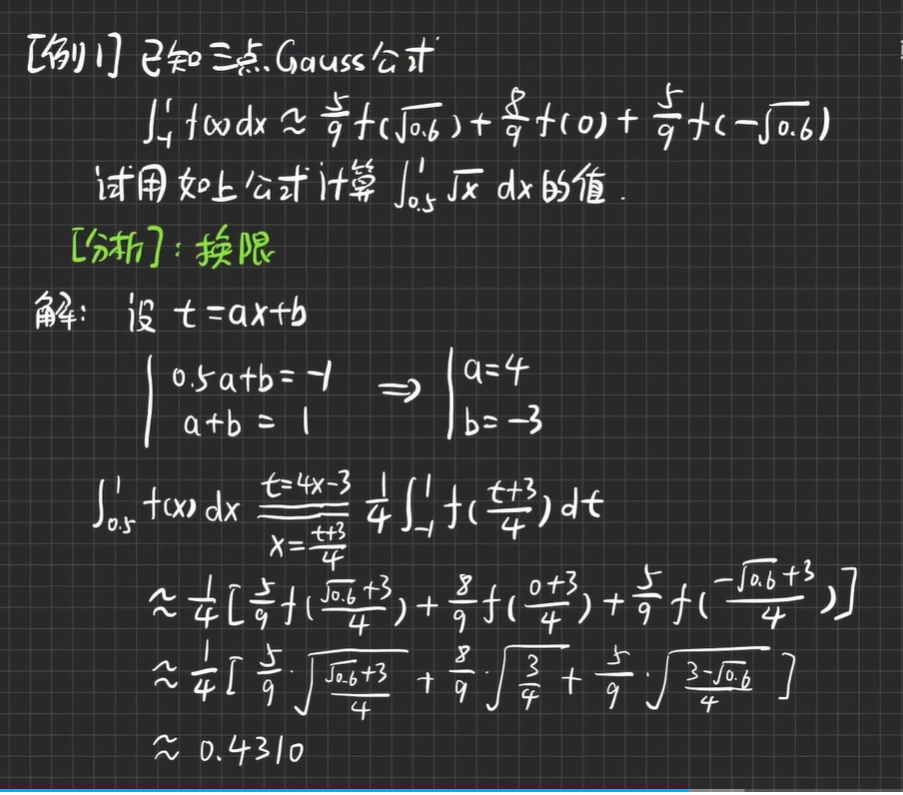 [例1] 已知三点Gauss公式
∫₋₁¹ f(x)dx ≈ 5/9 f(√0.6) + 8/9 f(0) + 5/9 f(-√0.6)
试用如上公式计算 ∫₀.₅¹ √x dx的值.
[分析]: 换限
解: 设 t=ax+b
| 0.5a+b=-1 ⇒ | a=4
| a+b=1 | b=-3
∫₀.₅¹ f(x) dx (t=4x-3) == (x=(t+3)/4) 1/4 ∫₋₁¹ f((t+3)/4) dt
≈ 1/4 [5/9 f((√0.6+3)/4) + 8/9 f((0+3)/4) + 5/9 f((-√0.6+3)/4)]
≈ 1/4 [5/9 · √((√0.6+3)/4) + 8/9 · √(3/4) + 5/9 · √((3-√0.6)/4)]
≈ 0.4310